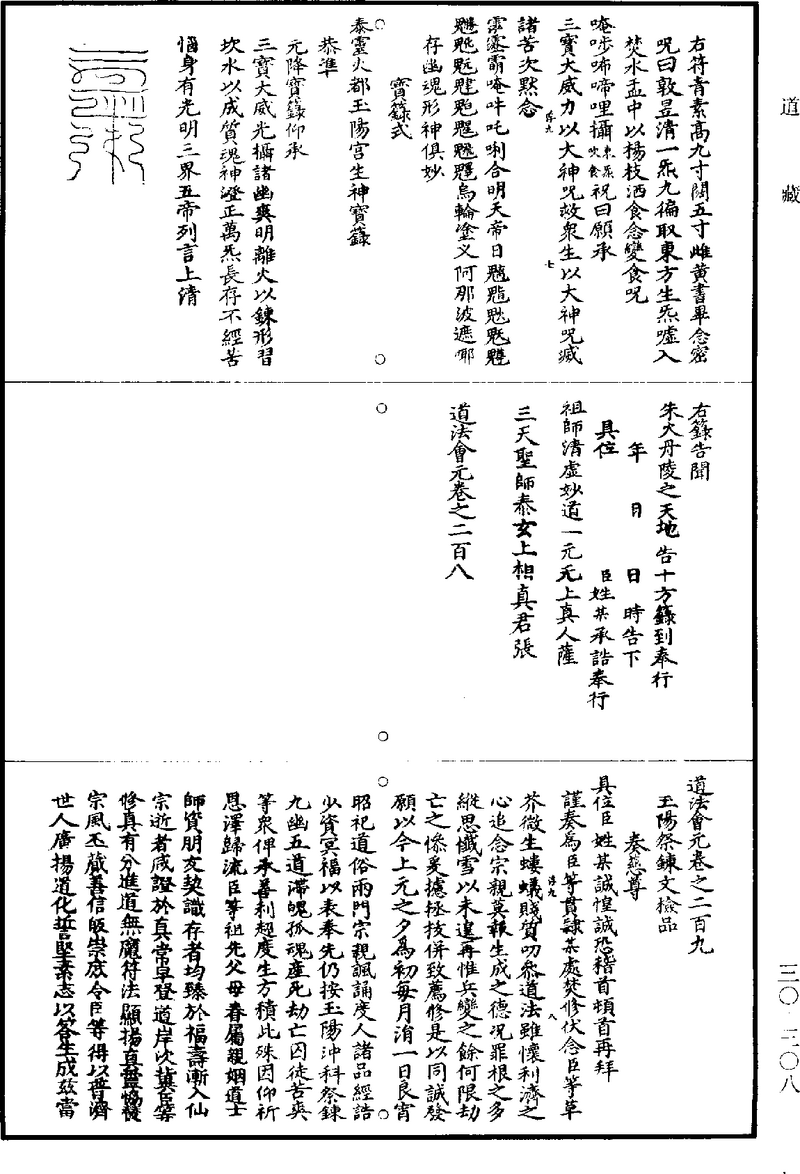 道藏
右符青素高九寸闊五寸雌黃書畢念密
咒曰敦昱清一炁九徧取東方生炁噓入
焚水盂中以楊枝洒食念變食咒
唵步哧啼哩攝東炁吹食祝曰願承
三寶大威力以大神咒故眾生以大神咒滅
諸苦次默念
唵吽吒唎合明天帝日
烏輪塗义阿那波遮哪
存幽魂形神俱妙
寶籙式
泰靈火都玉陽宮生神寶籙
恭準
元降寶籙仰承
三寶大威光攝諸幽爽明離火以鍊形習
坎水以成質魂神澄正萬炁長存不經苦
惱身有光明三界五帝列言上清
右籙告聞
朱火丹陵之天地告十方籙到奉行
年 月 日 時告下
具位 臣姓某承誥奉行
祖師清虛妙道一元无上真人薩
三天聖師泰玄上相真君張
道法會元卷之二百八
道法會元卷之二百九
玉陽祭鍊文檢品
奏慈尊
具位臣姓某誠惶誠恐稽首頓首再拜
謹奏為臣等貫隸某處焚修伏念臣等草
芥微生螻蟻賤質叨叅道法雖懷利濟之
心追念宗親莫報生成之德況罪根之多
縱思懺雪以未遑再惟兵變之餘何限劫
亡之慘爰攄拯技併致薦修是以同誠發
願以今上元之夕為初每月涓一日良宵
昭祀道俗兩門宗親諷誦度人諸品經誥
少資冥福以表奉先仍按玉陽沖科祭鍊
九幽五道滯魄孤魂產死劫亡囚徒苦爽
等眾俾承善利超度生方積此殊因仰祈
恩澤歸流臣等祖先父母眷屬親姻道士
師資朋友契識存者均臻於福壽漸入仙
宗逝者咸證於真常早登道岸次冀臣等
修真有分進道無魔符法顯揚直
宗風丕嚴善信皈崇庶令臣等得以普濟
世人廣揚道化誓堅素志以答生成茲當
三〇-三〇八